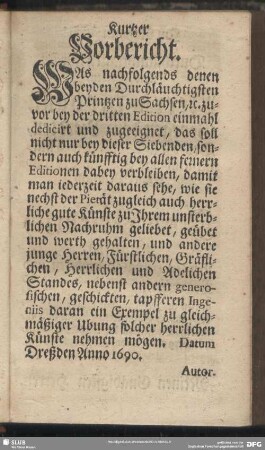 Kurtzer
Vorbericht.
WAs nachfolgends denen
beyden Durchläuchtigsten
Printzen zu Sachsen, ꝛc. zu-
vor bey der dritten Edition einmahl
dedicirt und zugeeignet, das soll
nicht nur bey dieser Siebenden, son-
dern auch künfftig bey allen fernern
Editionen dabey verbleiben, damit
man iederzeit daraus sehe, wie sie
nechst der Pietät zugleich auch herr-
liche gute Künste zu Ihrem unsterb-
lichen Nachruhm geliebet, geübet
und werth gehalten, und andere
junge Herren, Fürstlichen, Gräfli-
chen, Herrlichen und Adelichen
Standes, nebenst andern genero-
sischen, geschickten, tapfferen Inge-
niis daran ein Exempel zu gleich-
mäßiger Ubung solcher herrlichen
Künste nehmen mögen. Datum
Dreßden Anno 1690.
Autor.
SLUB